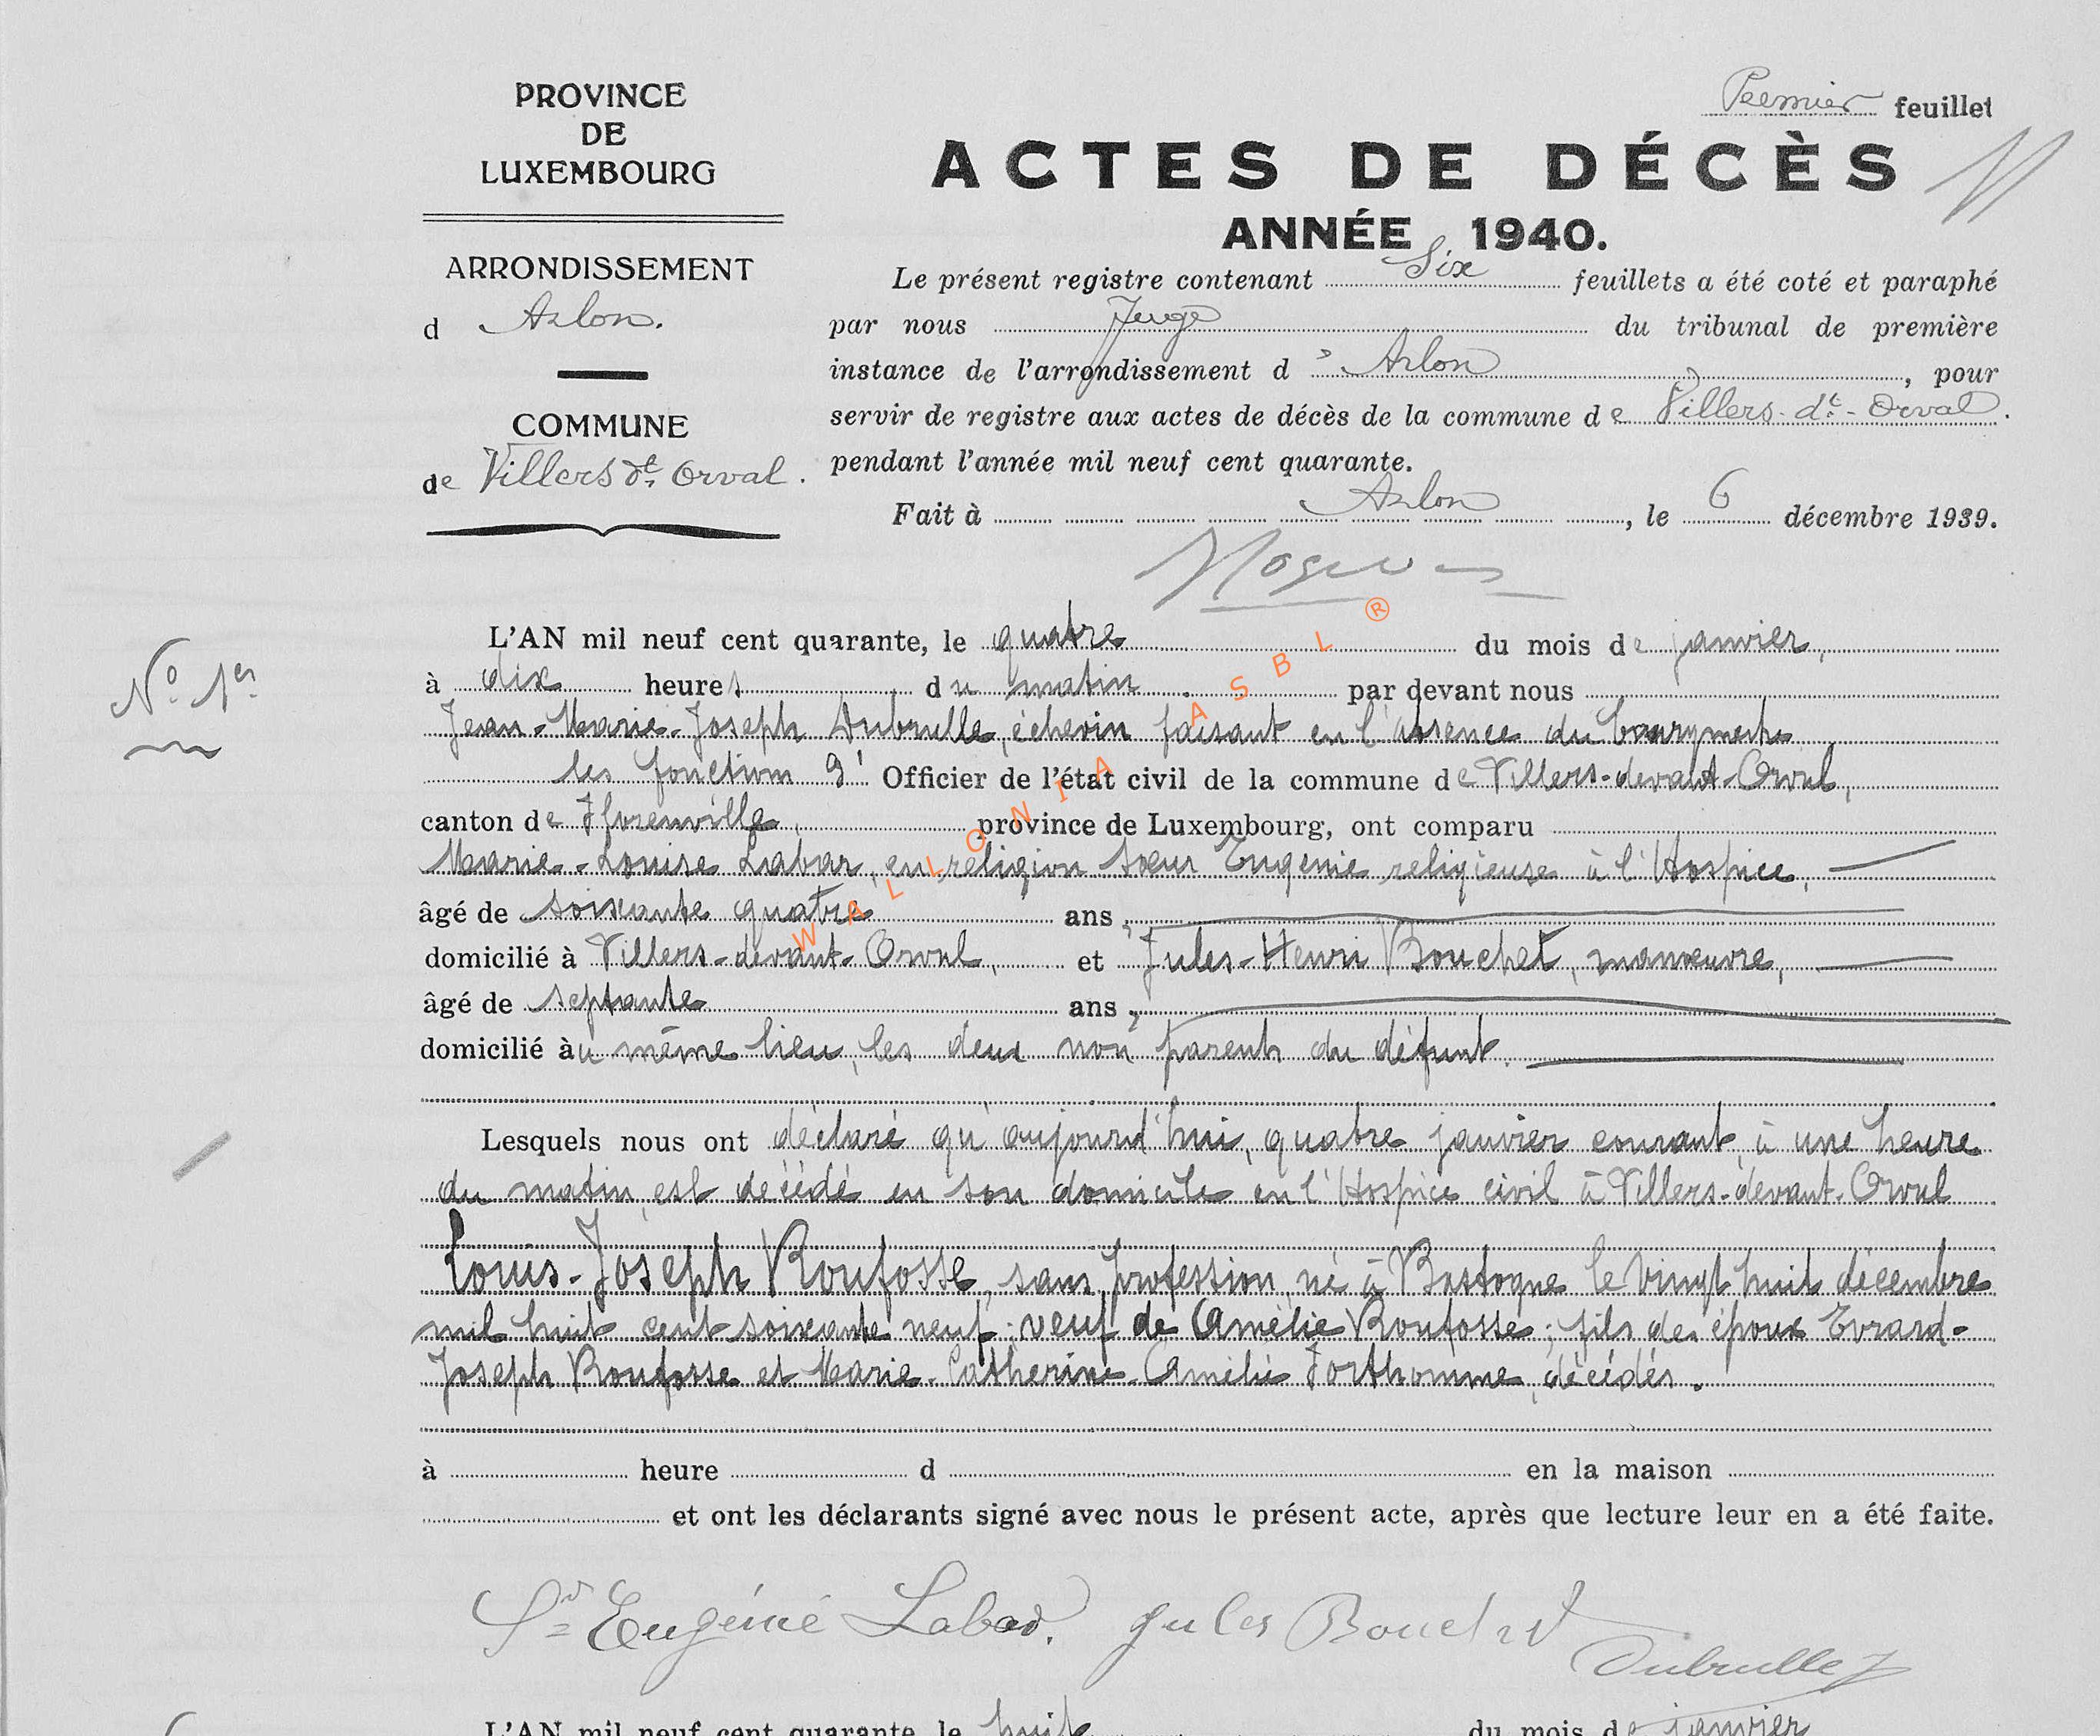 PROVINCE
DE
LUXEMBOURG
ARRONDISSEMENT
d Arlon.
COMMUNE
de Villers dt Orval.
Premier feuillet
ACTES DE DÉCÈS
ANNÉE 1940.
Le présent registre contenant Six feuillets a été coté et paraphé
par nous Juge du tribunal de première
instance de l'arrondissement d'Arlon, pour
servir de registre aux actes de décès de la commune de Villers-dt-Orval.
pendant l'année mil neuf cent quarante.
Fait à Arlon, le 6 décembre 1939.
No 1er
L'AN mil neuf cent quarante, le quatre du mois de janvier,
à dix heures du matin par devant nous
Jean-Marie-Joseph Dubrulle, échevin faisant en l'absence du bourgmestre
les fonction d' Officier de l'état civil de la commune de Villers-devant-Orval,
canton de Florenville, province de Luxembourg, ont comparu
Marie-Louise Labar, en religion Sœur Eugénie religieuse à l'Hospice,
âgé de soixante quatre ans,
domicilié à Villers-devant-Orval, et Jules-Henri Bouchet, manœuvre,
âgé de septante ans,
domicilié au même lieu, les deux non parents du défunt.
Lesquels nous ont déclaré qu'aujourd'hui, quatre janvier courant, à une heure
du matin, est décédé en son domicile en l'Hospice civil à Villers-devant-Orval
Louis-Joseph Roufosse, sans profession, né à Bastogne le vingt huit décembre
mil huit cent soixante neuf; veuf de Amélie Roufosse; fils des époux Evrard-
Joseph Roufosse et Marie-Catherine-Amélie Forthomme, décédés.
à heure d en la maison
et ont les déclarants signé avec nous le présent acte, après que lecture leur en a été faite.
Sr Eugénie Labar. Jules Bouchet
Dubrulle J
L'AN mil neuf cent quarante, le huit du mois de janvier
WALLONIA ASBL ®